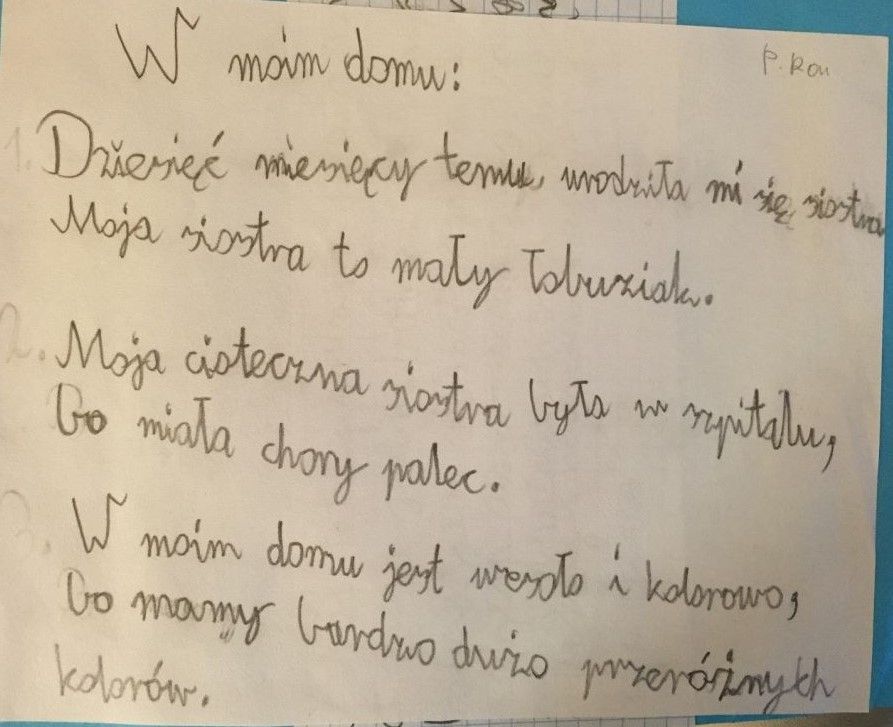 W moim domu:
P. Kon
1. Dziesięć miesięcy temu, urodziła mi się siostra
Moja siostra to mały łobuziak.
2. Moja cioteczna siostra była w szpitalu,
bo miała chory palec.
3. W moim domu jest wesoło i kolorowo,
bo mamy bardzo dużo przeróżnych
kolorów.